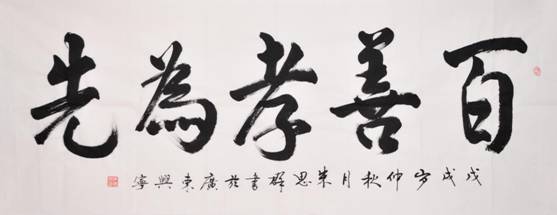 百善孝為先
戊戌岁仲秋月朱思群書於廣東興寧